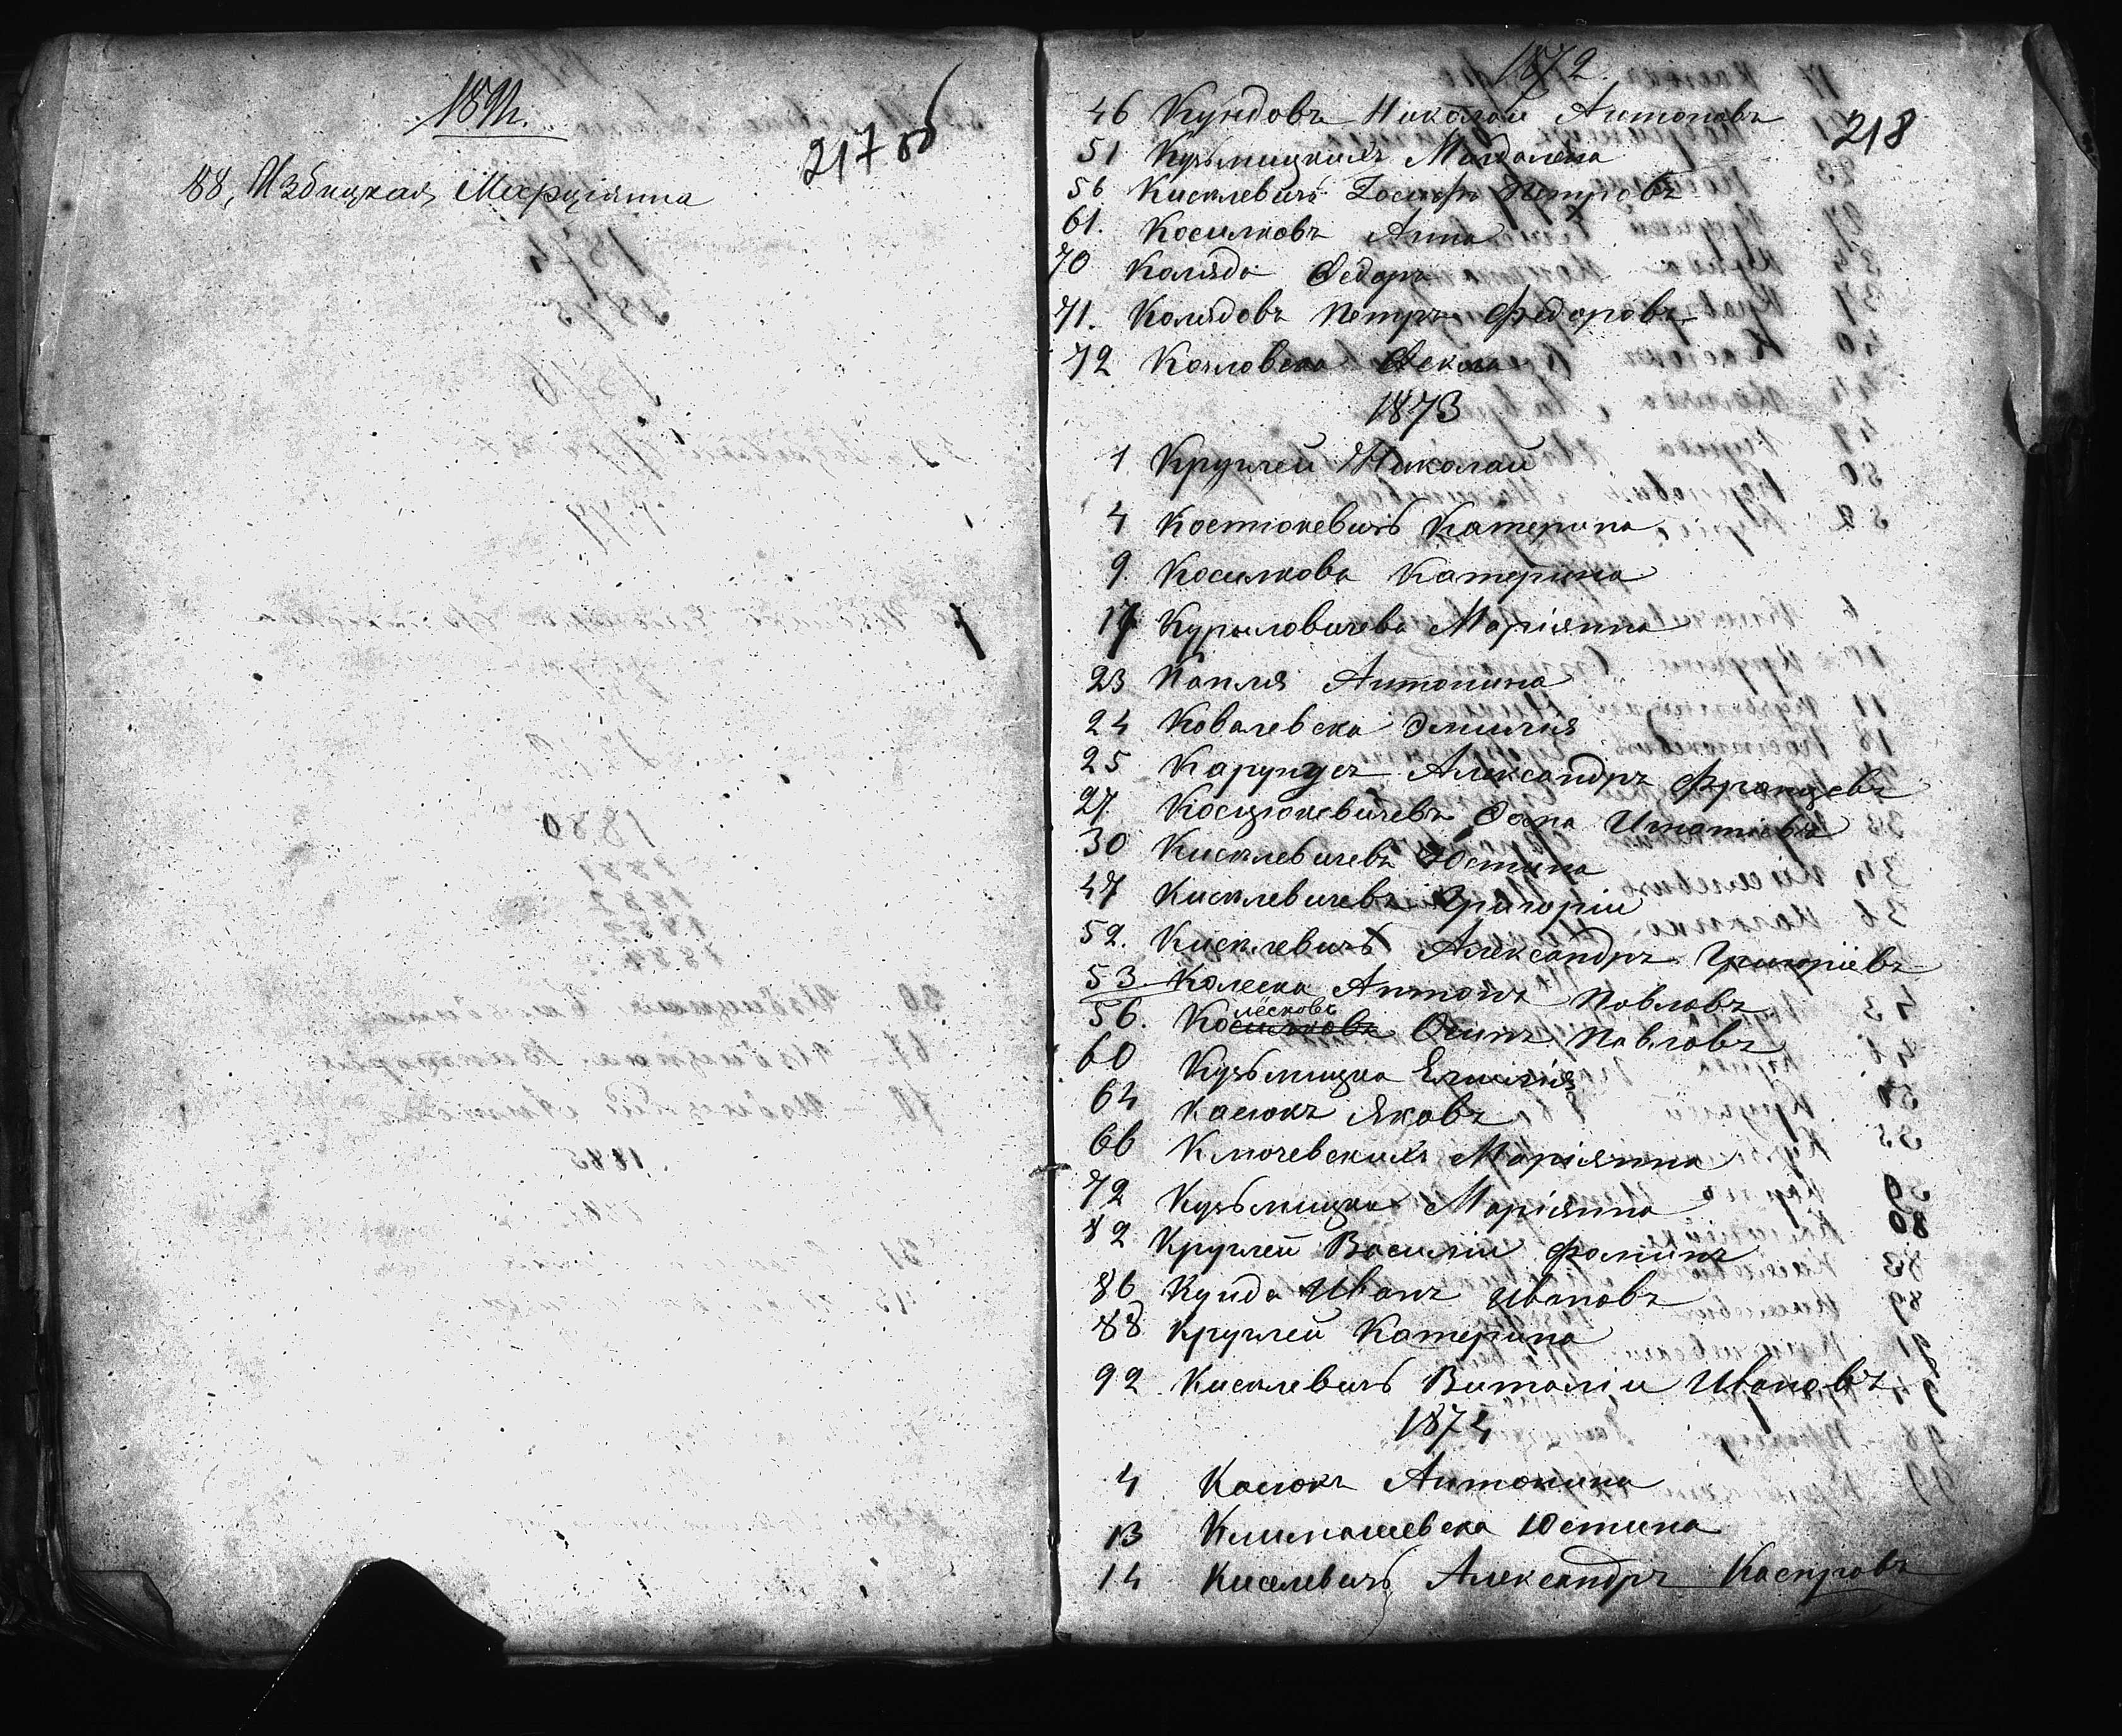 217 об
88, Избицкая Марціянна
1872.
218
46 Кундовъ Николай Антоновъ
51 Кузьмицкихъ Магдалена
56 Кисклевичъ Іосифъ Петровъ
61. Косилковъ Анна
70 Коляда Федоръ
71. Колядовъ Петръ Федоровъ
72 Козловска Текля
1873
1 Круглей Николай
4 Костюкевичъ Катерина
9. Косилкова Катерина
17 Курыловичева Маріянна
23 Капля Антонина
24 Ковалевска Эмилия
25 Карунусъ Александръ Францевъ
27. Косцюкевичевъ Фома Игнатьевъ
30 Кисклевичевъ Юстина
47 Кисклевичевъ Григорій
52. Кисклевичъ Александръ Григоріевъ
53 Калеска Антонъ Павловъ
56. Колесковъ Осипъ Павловъ
60 Кузьмицка Емилия
64 Касюкъ Яковъ
66 Ключевскихъ Маріянна
72 Кузьмицка Маріянна
82 Круглей Василій Фоминъ
86 Кунда Иванъ Ивановъ
88 Круглей Катерина
92 Кисклевичъ Виталій Ивановъ
1874
4 Касюкъ Антонина
13 Климашевска Юстина
14 Киселевичъ Александръ Каспровъ